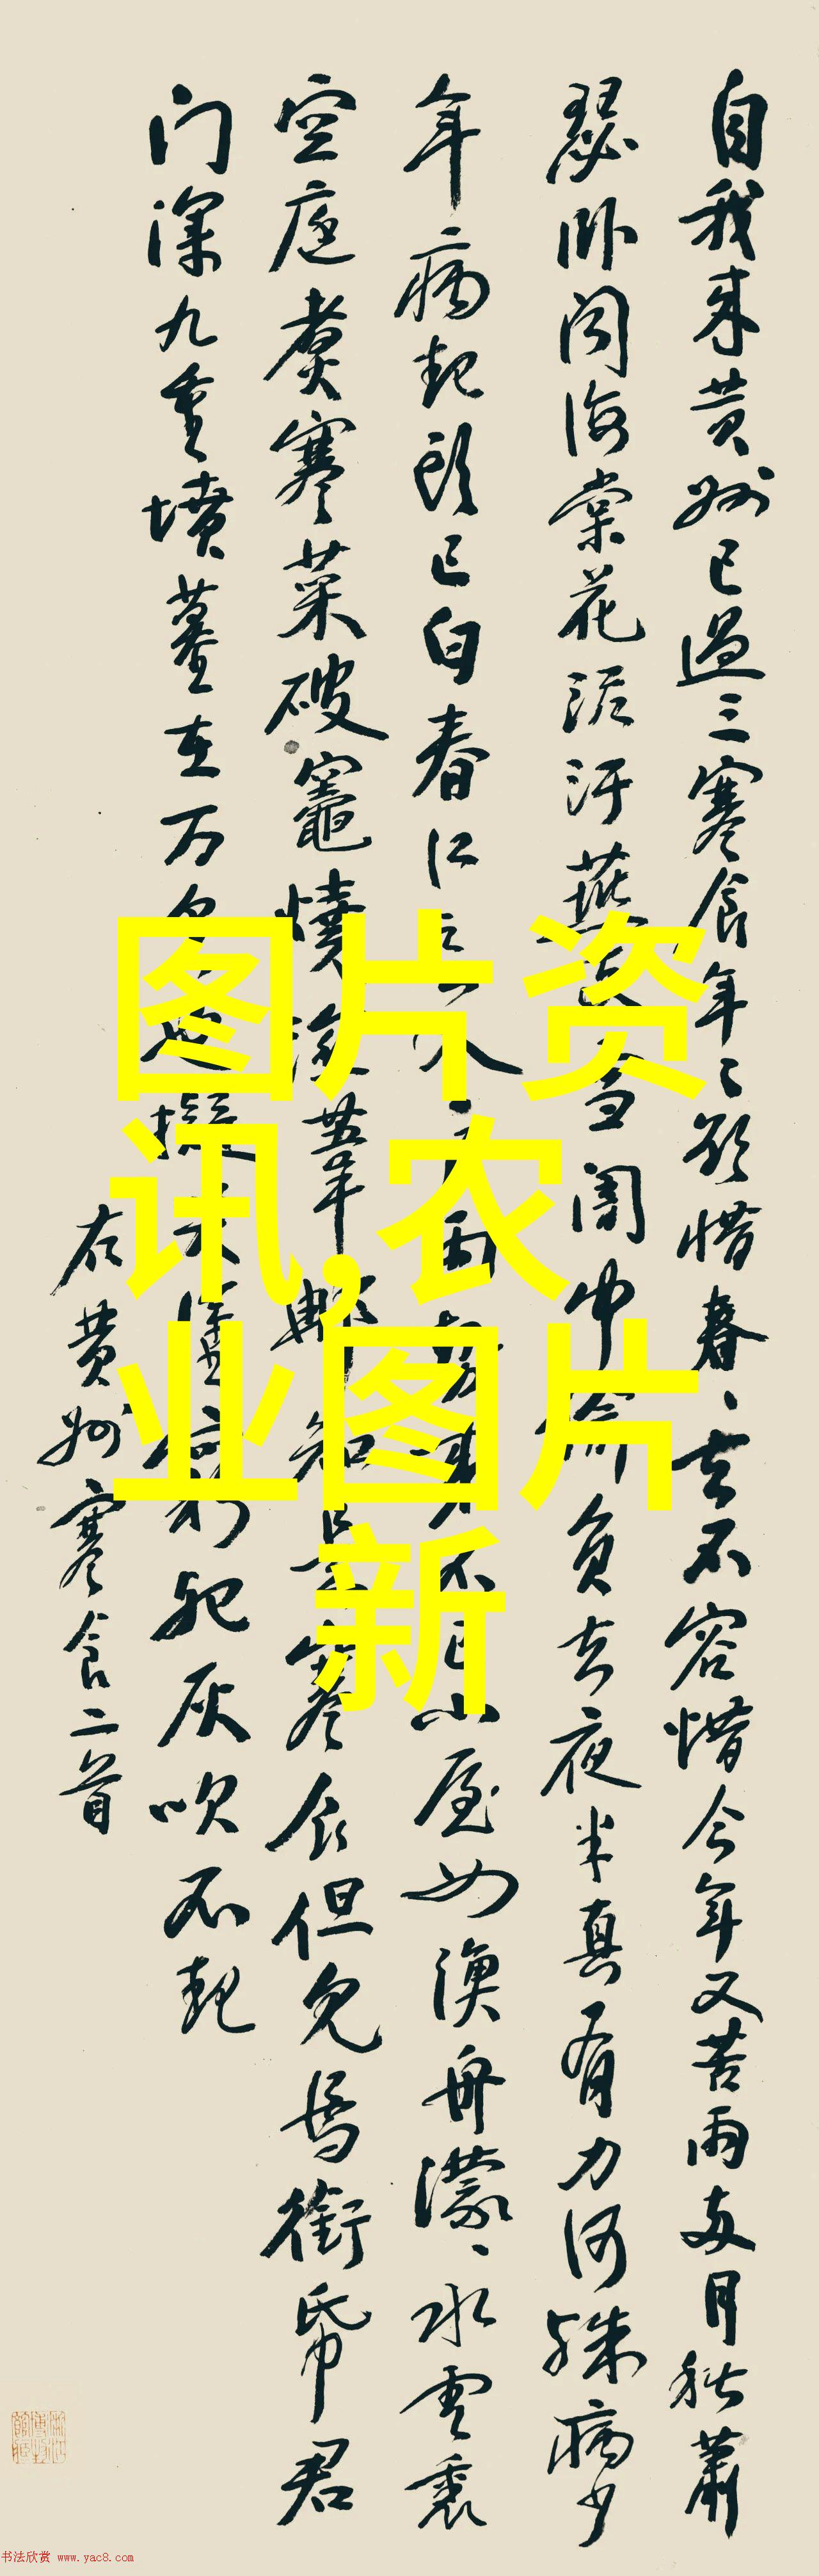 自我来黄州已過三寒食年〻欲惜春、去不容惜今年又苦雨两月秋蕭
瑟卧闻海棠花泥汙燕雪闇中偷負去夜半真有力何殊病少
年病起頭已白春江入雨势来不已山屋如漁舟濛、水雲裏
空庖煮寒菜破竈燒濕葦那知是寒食但見烏銜帋君
门深九重墳墓在万也擬塗窮死灰吹不起
右黄州寒食二首
图片资
讯,农
业图片
新
书法欣赏 www.yac8.com